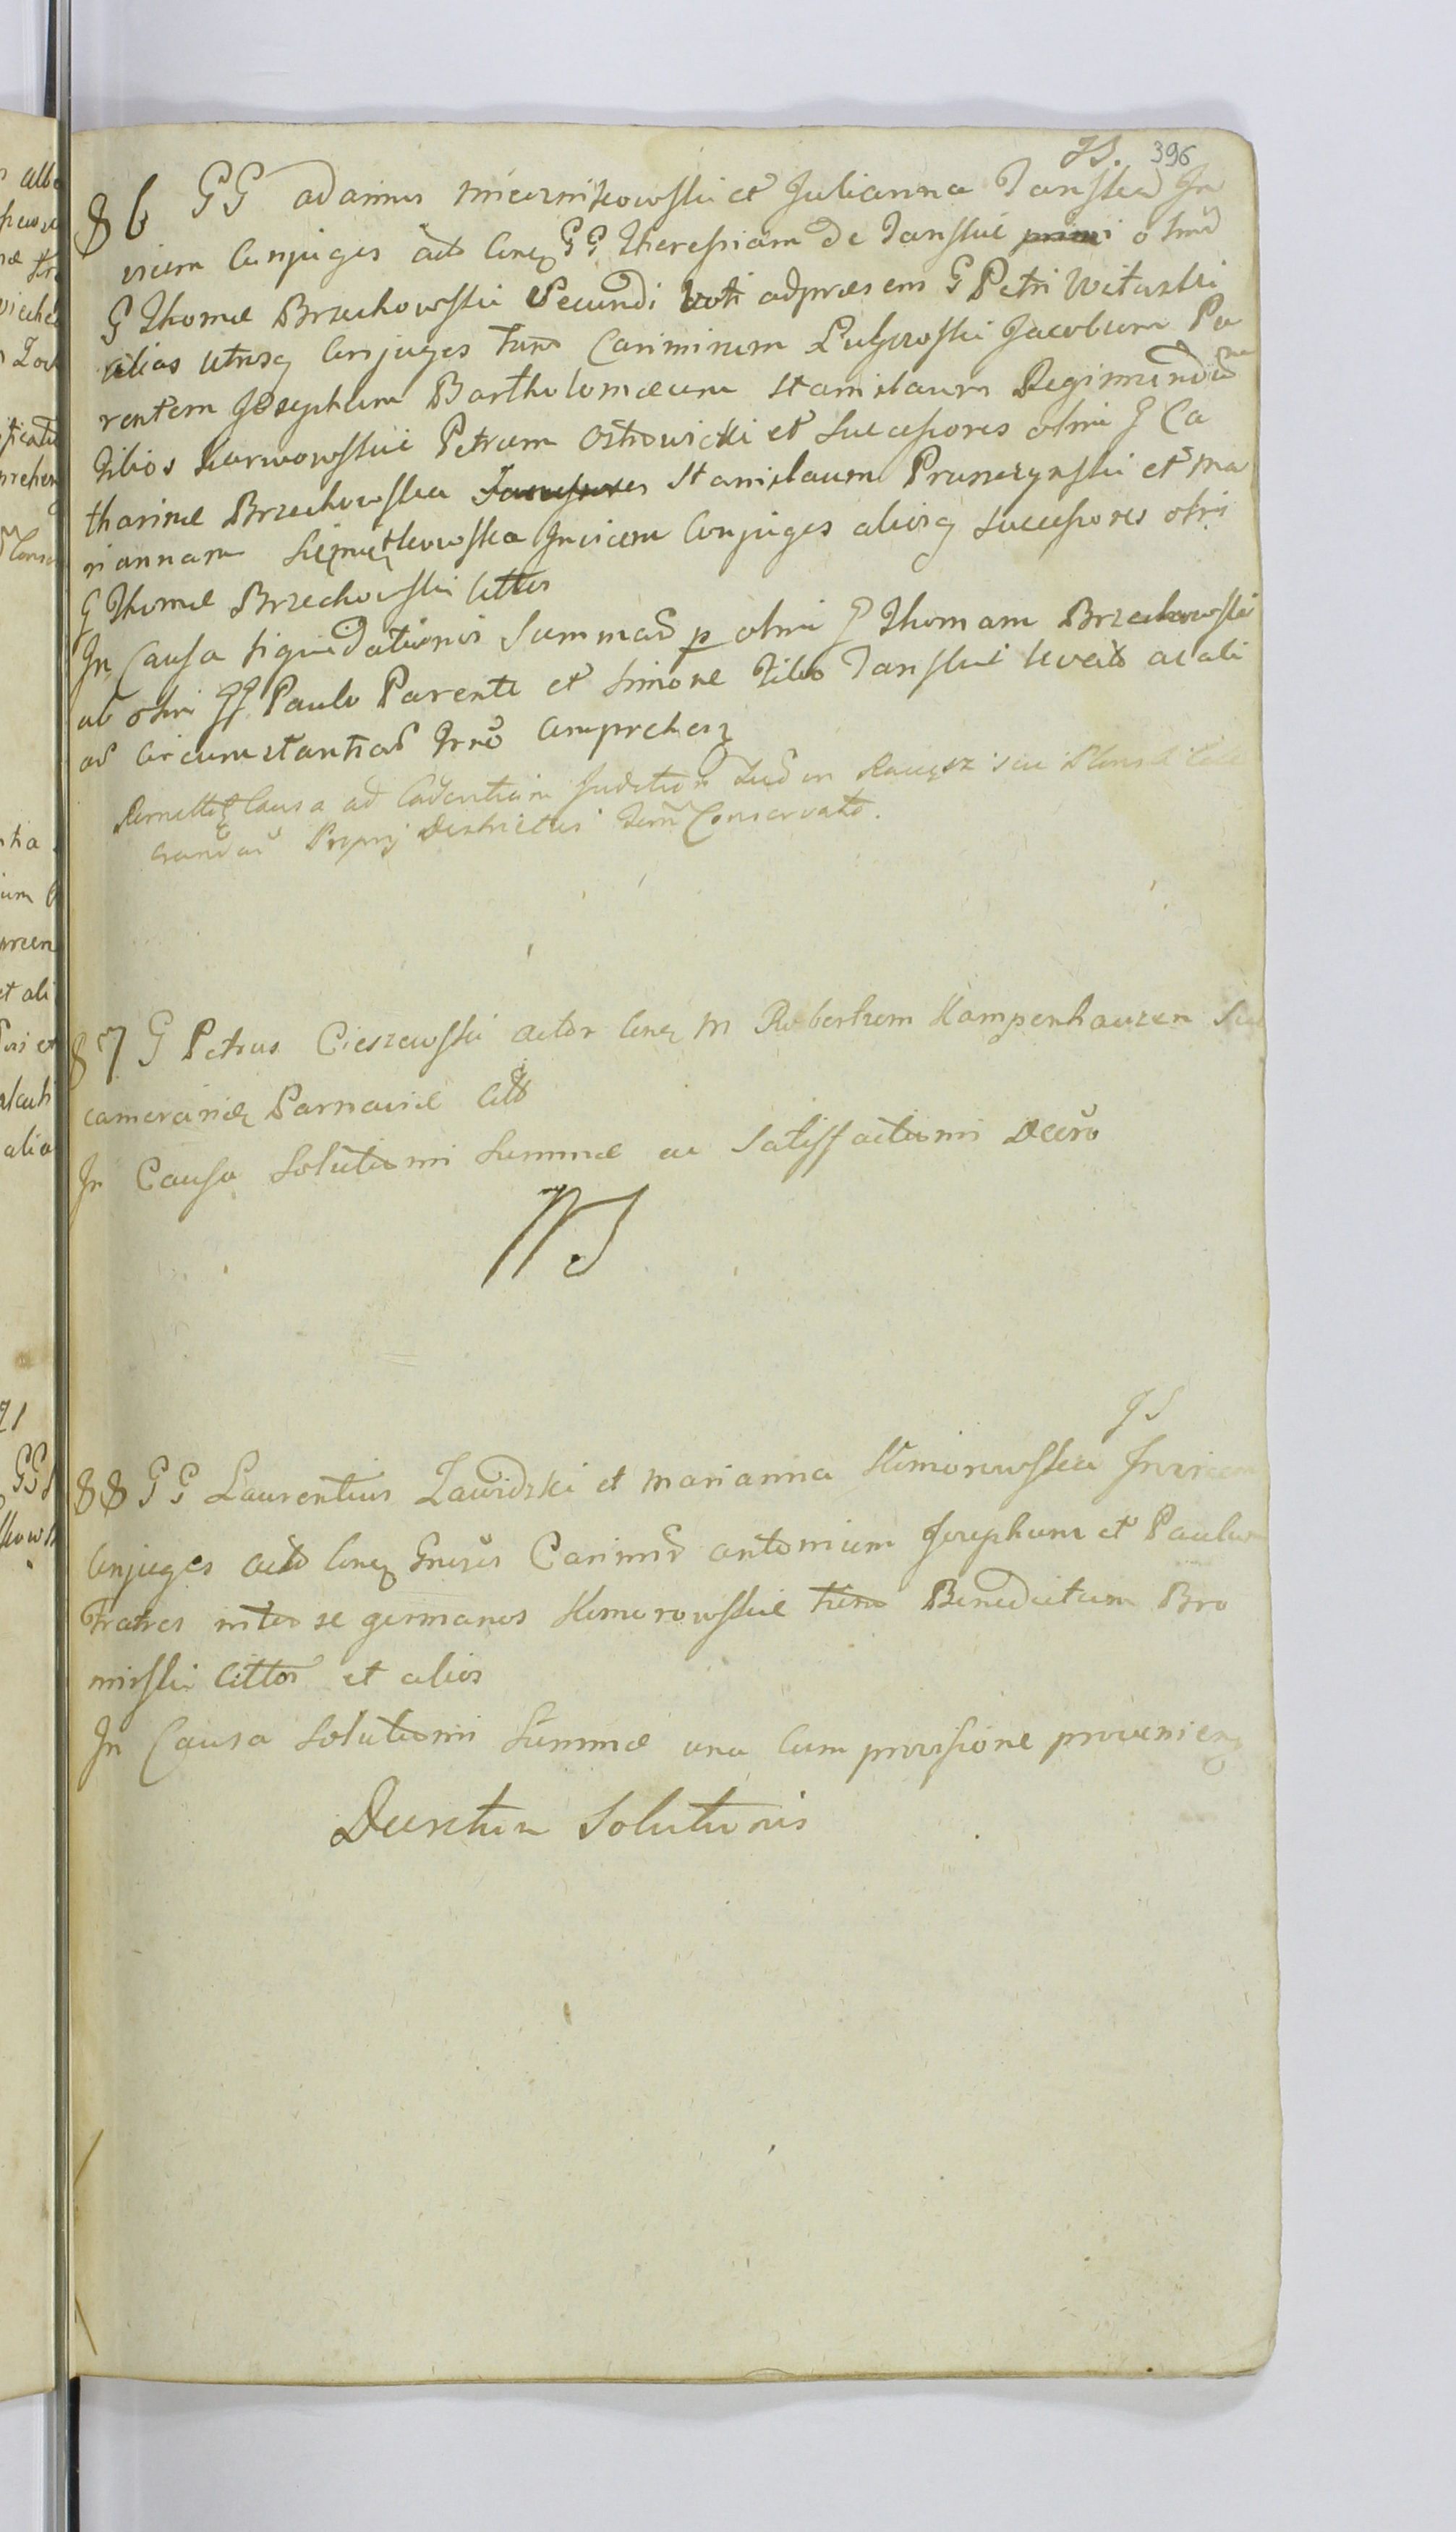 JS. 396
86 GG adamus Miecznikowski et Julianna Janska In
vicem Conjuges act Conq GG Theressiam de Janskie primi olim
G Thomæ Brzechowski Secundi voti adpræsens G Petri Wituski
alias utrusq Conjuges tum Casimirum Jacobum Pa
rentem Josephum Bartholomæum Stanislaum Regimundum
Filios Karwowskie Petrum Ostrowicki et Sucessores olim G Ca
tharinæ Brzechowska Stanislaum Pruszynski et Ma
riannam Invicem Conjuges aliosq Sucessores olim
G Thomæ Brzechowski Cittos
In Causa Liquidationis Summar p olim G Thomam Brzechowski
ab olim GG Paulo Parente et Simone Filio Janskie levat ac ali
as Circumstantias Trno Comprehens
Remittiq Causa ad Cadentiam Juditior
Proprij Districtus Term Conservato.
87 G Petrus Cieszewski actor Conq M Robertum Kampenhauzen Suc
camerariq Parnaviæ Citt
In Causa Solutionis Summæ ac Satisfactionis Decro
JS
88 GG Laurentius Zawidzki et Marianna Komorowska Invicem
Conjuges act Conq Gnrsos Casimir antonium Josephum et Paulum
Fratres inter se germanos Komorowskie tum Benedictum Bro
mirski Cittos et alios
In Causa Solutionis Summæ una Cum provisione provenienq
Decretum Solutionis